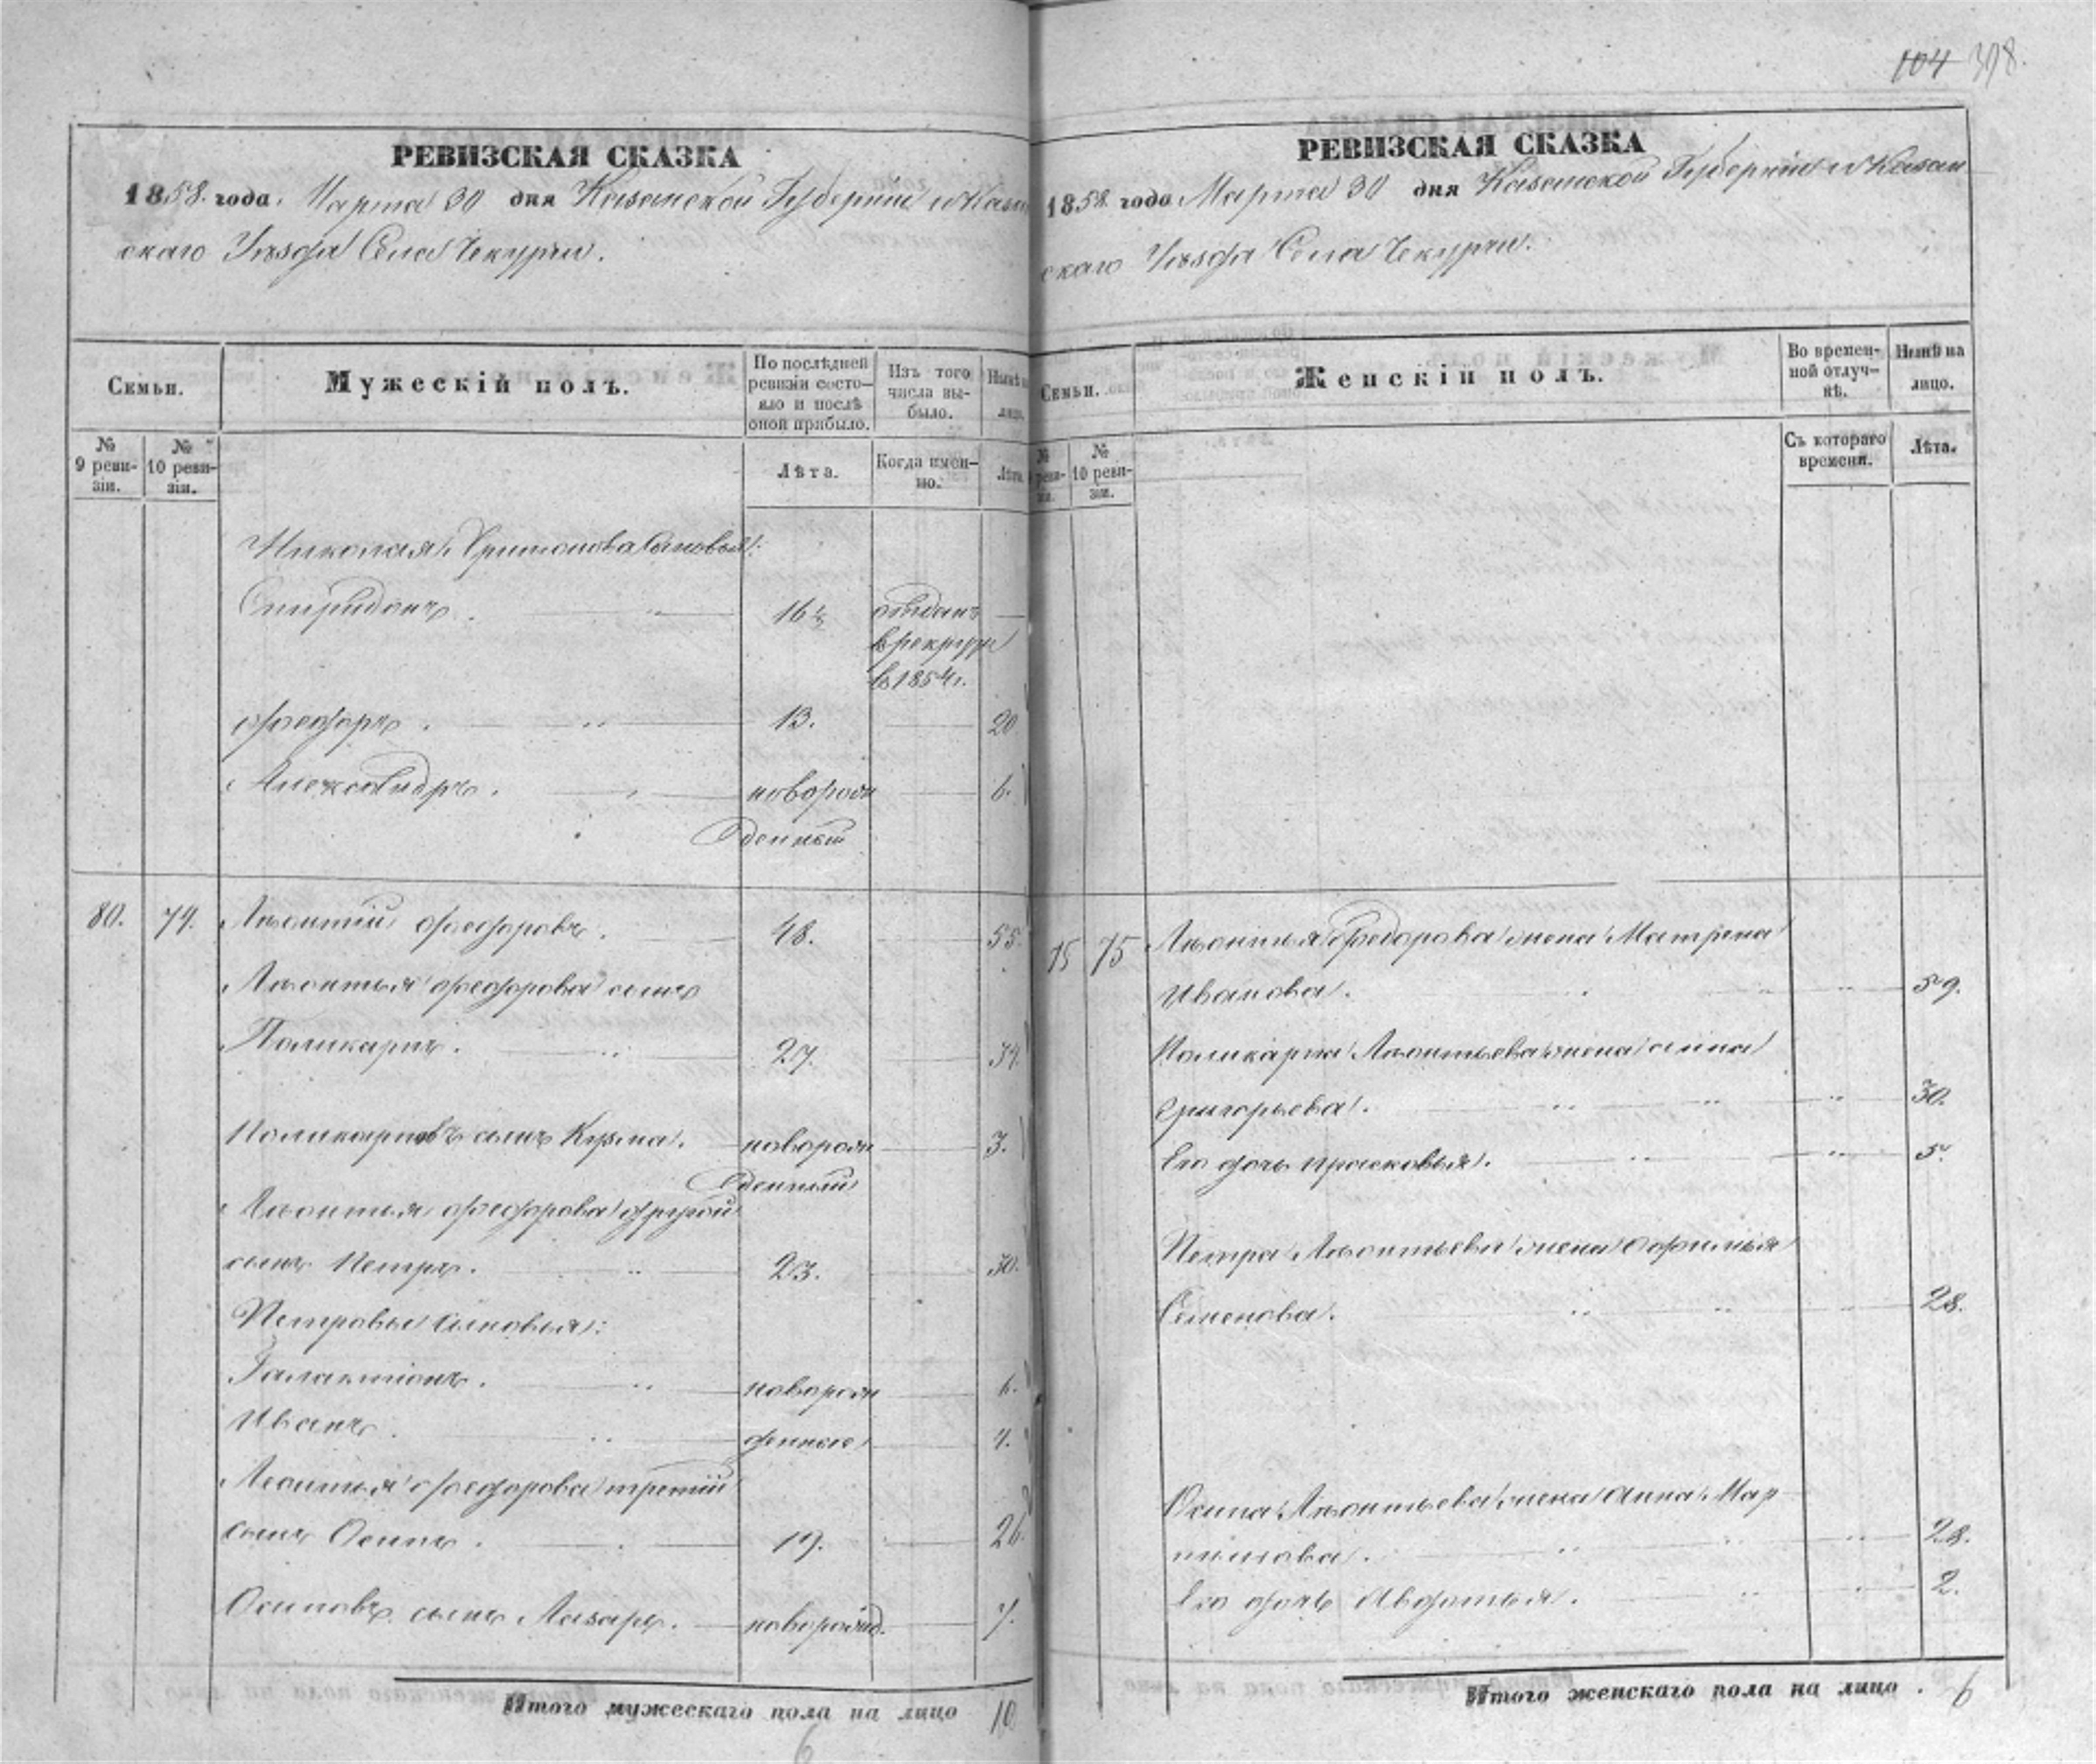 398.
РЕВИЗСКАЯ СКАЗКА
1858. года. Марта 30 дня Казанской Губерніи и Казан
скаго Уѣзда Села Чекурчи.
Семьи.
Мужескій полъ.
По послѣдней ревизіи состояло и послѣ оной прибыло.
Изъ того числа выбыло.
Нынѣ на лицо.
№ 9 ревизіи.
№ 10 ревизіи.
Лѣта.
Когда именно.
Лѣта.
Николая Сыновья:
Спиридонъ. 16½ отданъ —
в рекруты
в 1854 г.
Федоръ. 13. 20
Александръ. новорож 6.
денный
80. 74. Леонтій Федоровъ. 48. 55.
Леонтья Федорова сынъ
Поликарпъ. 27. 34.
Поликарповъ сынъ Кузма. новорож 3.
денный
Леонтья Федорова другой
сынъ Петръ. 23. 30.
Петровы сыновья:
Галактіонъ. новорож 6.
Иванъ. денные 4.
Леонтья Федорова третій
сынъ Осипъ. 19. 26.
Осиповъ сынъ Лазарь. новорожд. 7.
Итого мужескаго пола на лицо 10
6
РЕВИЗСКАЯ СКАЗКА
1858. года Марта 30 дня Казанской Губерніи и Казан
скаго Уѣзда Села Чекурчи.
Семьи.
Женскій полъ.
Во временной отлучкѣ.
Нынѣ на лицо.
№ реви-зіи.
№ 10 ревизіи.
Съ котораго времени.
Лѣта.
75 Леонтья Федорова жена Матрена
Иванова. 59.
Поликарпа Леонтьева жена Анна
Григорьева. 30.
Его дочь Прасковья. 5.
Петра Леонтьева жена Офимья
Семенова. 28.
Осипа Леонтьева жена Анна Мар
тинова. 28.
Его дочь Авдотья. 2.
Итого женскаго пола на лицо . 6